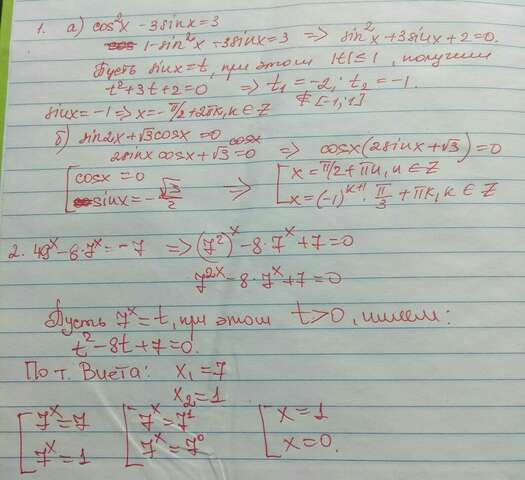 1. а) cos²x - 3sinx = 3
1 - sin²x - 3sinx = 3 ⇒ sin²x + 3sinx + 2 = 0.
Пусть sinx = t, при этом |t| ≤ 1, получим
t² + 3t + 2 = 0 ⇒ t₁ = -2; t₂ = -1.
∉ [-1; 1]
sinx = -1 ⇒ x = -π/2 + 2πk, k ∈ Z
б) sin2x + √3cosx = 0
2sinx cosx + √3 cosx = 0 ⇒ cosx(2sinx + √3) = 0
[cosx = 0 ⇒ [x = π/2 + πn, n ∈ Z
[sinx = -√3/2 [x = (-1)^(k+1) · π/3 + πk, k ∈ Z
2. 49ˣ - 8·7ˣ = -7 ⇒ (7²)ˣ - 8·7ˣ + 7 = 0
7²ˣ - 8·7ˣ + 7 = 0
Пусть 7ˣ = t, при этом t > 0, имеем:
t² - 8t + 7 = 0.
По т. Виета: x₁ = 7
x₂ = 1
[7ˣ = 7 [7ˣ = 7¹ [x = 1
[7ˣ = 1 [7ˣ = 7⁰ [x = 0.